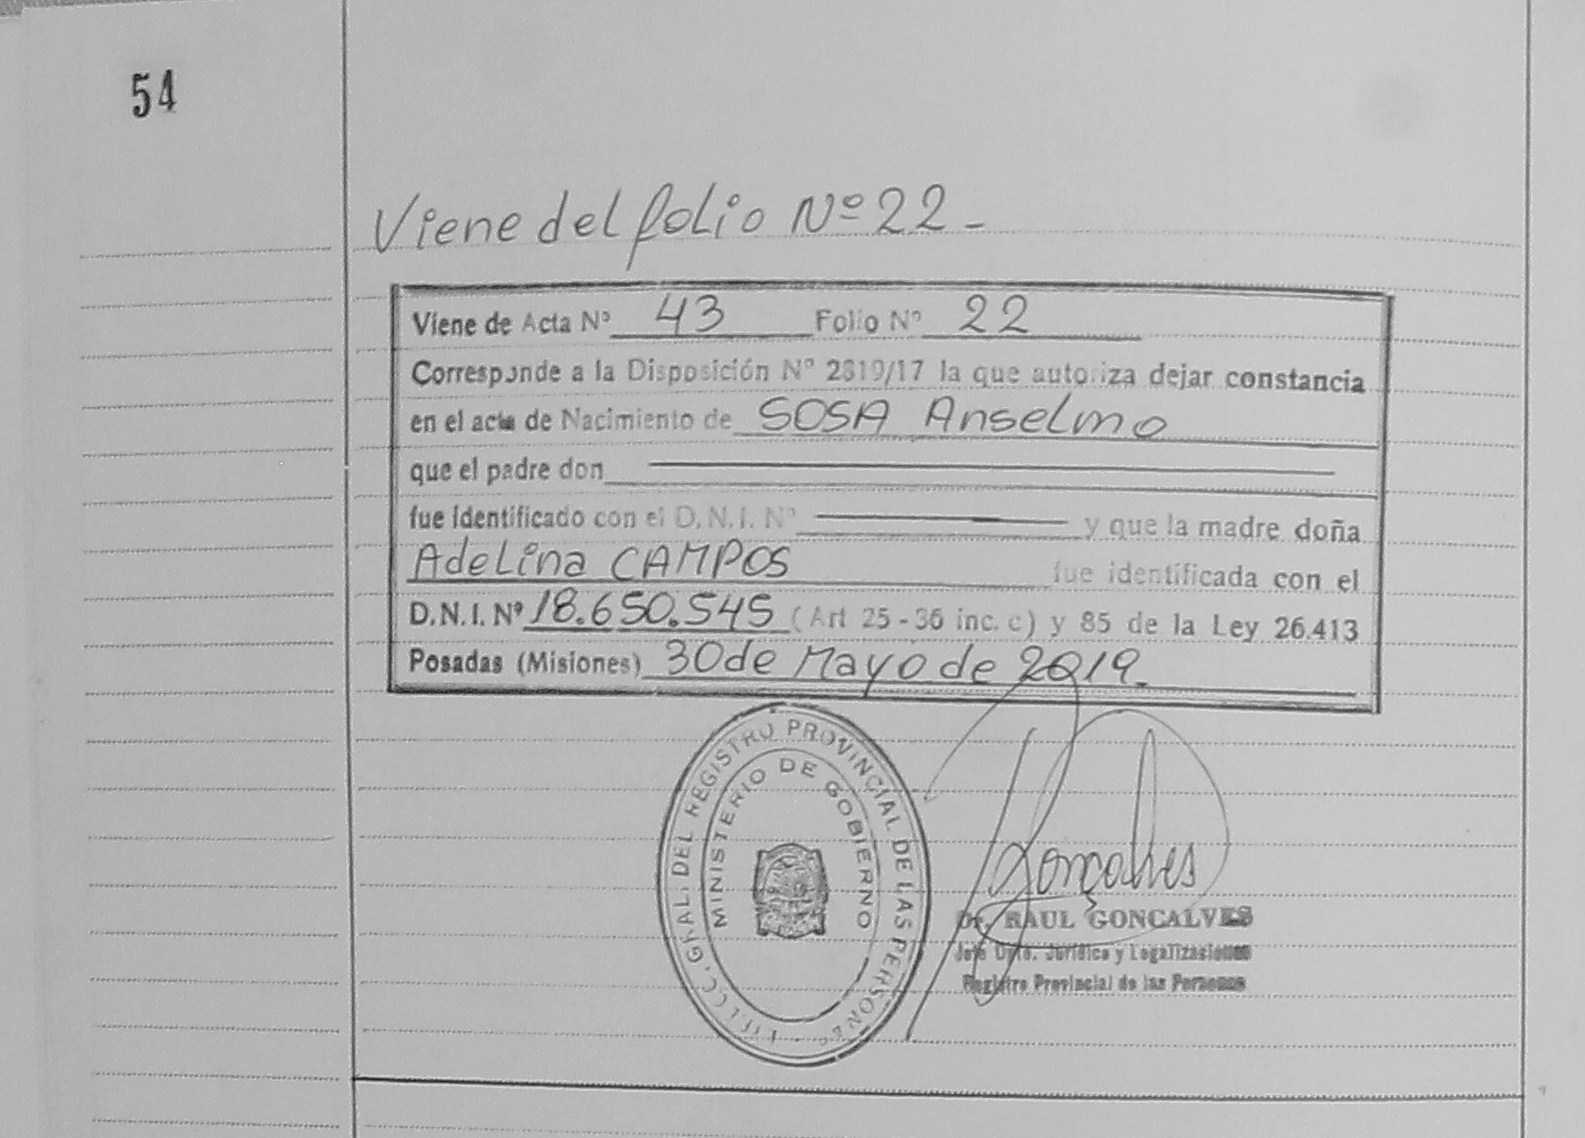 54
Viene del folio Nº 22 -
Viene de Acta Nº 43 Folio Nº 22
Corresponde a la Disposición Nº 2819/17 la que autoriza dejar constancia
en el acta de Nacimiento de SOSA Anselmo
que el padre don
fue identificado con el D.N.I. Nº y que la madre doña
Adelina CAMPOS fue identificada con el
D.N.I. Nº 18.650.545 (Art 25 - 36 inc. c) y 85 de la Ley 26.413
Posadas (Misiones) 30 de Mayo de 2019.
GRAL. DEL REGISTRO PROVINCIAL DE LAS PERSONAS
MINISTERIO DE GOBIERNO
Gonçalves
Dr. RAUL GONCALVES
Jefe Dpto. Jurídico y Legalizaciones
Registro Provincial de las Personas